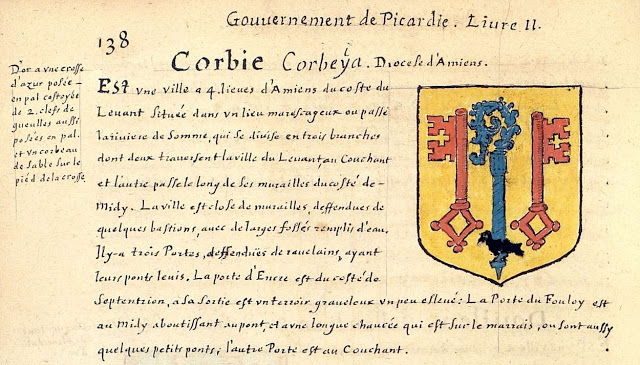 Gouuernement de Picardie. Liure II.
138
Corbie Corbeÿa. Diocese d'Amiens.
D'or a vne crosse
d'azur posée
en pal costoyée
de 2. clefs de
gueulles aussi
posées en pal.
et vn corbeau
de sable sur le
pied de la crosse
Est vne ville a 4. lieues d'Amiens du coste du
Leuant située dans vn lieu marescageux ou passe
la riuiere de Somme, qui se diuise en trois branches
dont deux trauersent la ville du Leuant, au Couchant
et l'autre passe le long de ses murailles du costé de
Midy. La ville est close de murailles, deffendues de
quelques bastions, auec de larges fossés remplis d'eau.
Il y a trois Portes, deffendües de rauelains, ayant
leurs ponts leuis. La porte d'Encre est du costé de
Septentrion, a sa sortie est vn terroir graueloux vn peu esleué: La Porte du Fouloy est
au midy aboutissant au pont, et a vne longue chaucée qui est sur le marrais, ou sont aussy
quelques petits ponts; l'autre Porte est au Couchant.